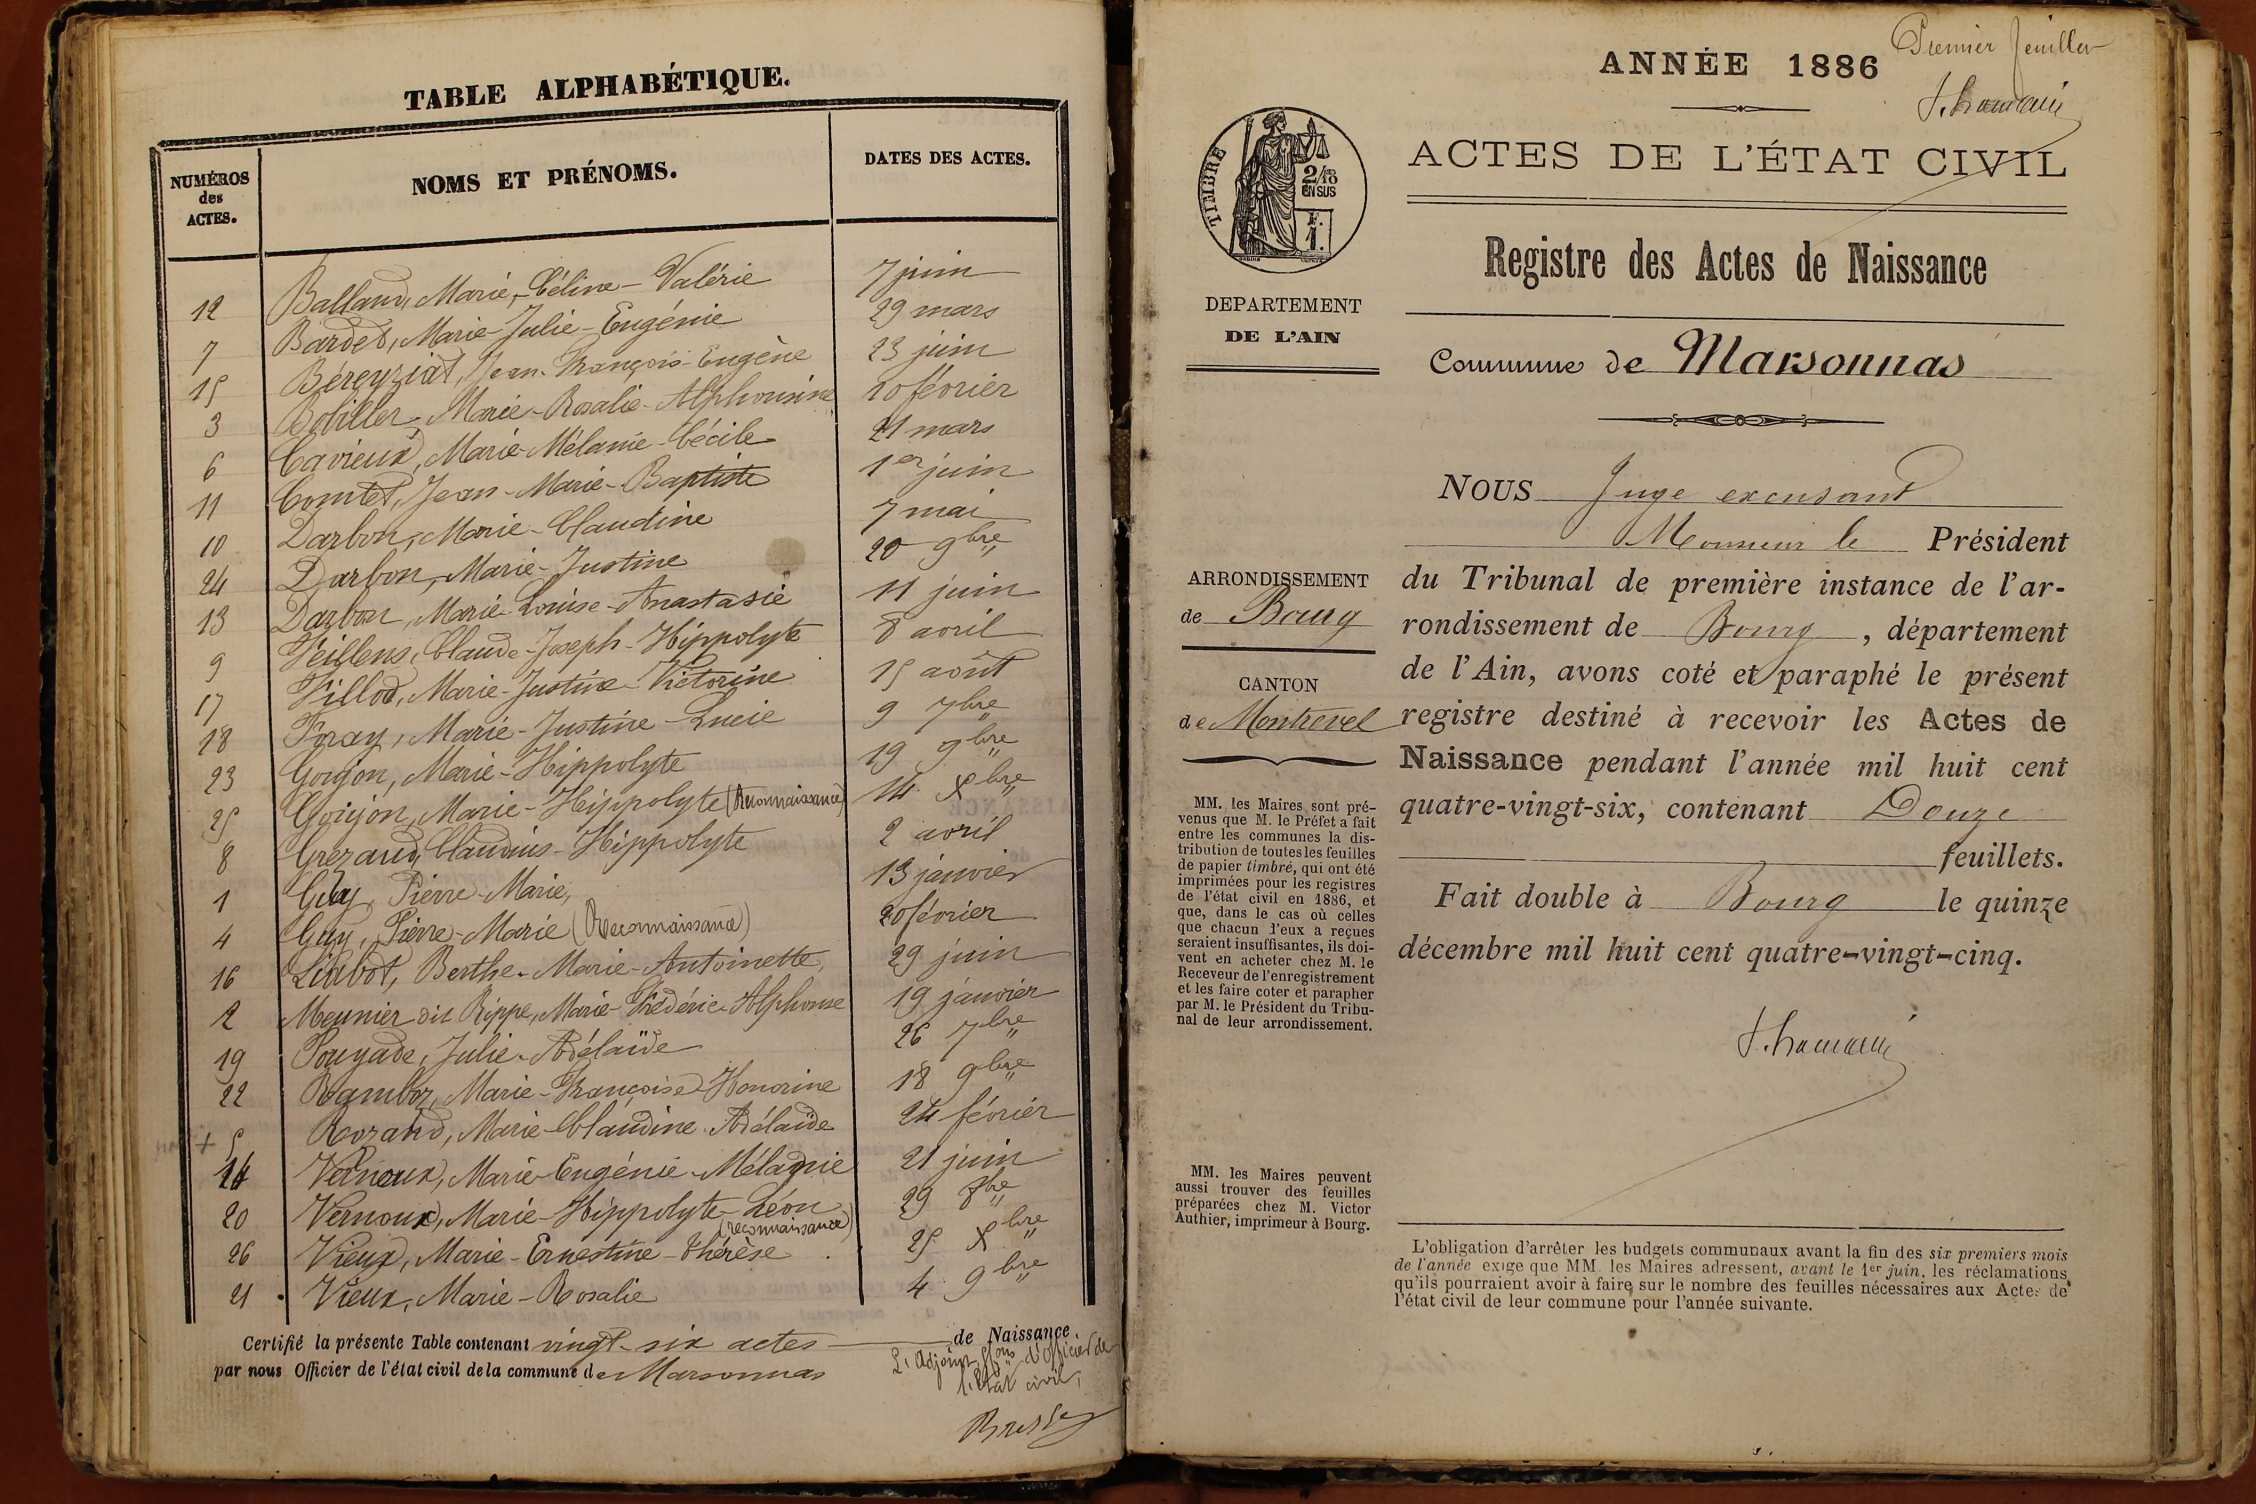 TABLE ALPHABÉTIQUE.
NUMÉROS des ACTES.
NOMS ET PRÉNOMS.
DATES DES ACTES.
12 Balland, Marie-Céline-Valérie 7 juin
7 Bardet, Marie-Julie-Eugénie 29 mars
15 Béreyziat, Jean-François-Eugène 23 juin
3 Bobiller, Marie-Rosalie-Alphonsine 10 février
6 Cavieux, Marie-Mélanie-Cécile 21 mars
11 Comtet, Jean-Marie-Baptiste 1er juin
10 Darbon, Marie-Claudine 7 mai
24 Darbon, Marie-Justine 20 9bre
13 Darbon, Marie-Louise-Anastasie 11 juin
9 Feillens, Claude-Joseph-Hippolyte 8 avril
17 Fillod, Marie-Justine-Victorine 15 août
18 Foray, Marie-Justine-Lucie 9 7bre
23 Goujon, Marie-Hippolyte 19 9bre
25 Goujon, Marie-Hippolyte (Reconnaissance) 14 Xbre
8 Grezaud, Claudius-Hippolyte 2 avril
1 Guy, Pierre-Marie, 13 janvier
4 Guy, Pierre-Marie (Reconnaissance) 20 février
16 Liabot, Berthe-Marie-Antoinette, 29 juin
2 Meunier dit Rippe, Marie-Frédéric-Alphonse 19 janvier
19 Pougade, Julie-Adélaïde 26 7bre
22 Ramboz, Marie-Françoise-Honorine 18 9bre
+ 5 Rozand, Marie-Claudine-Adélaïde 24 février
14 Vernoux, Marie-Eugénie-Mélanie 21 juin
20 Vernoux, Marie-Hippolyte-Léon 29 8bre
(reconnaissance)
26 Vieux, Marie-Ernestine-Thérèse 25 Xbre
21 Vieux, Marie-Rosalie 4 9bre
Certifié la présente Table contenant vingt-six actes de Naissance.
par nous Officier de l'état civil de la commune de Marsonnas
L'Adjoint, fons d'officier de
l'état civil,
Premier feuillet
ANNÉE 1886
ACTES DE L'ÉTAT CIVIL
TIMBRE
2/10 EN SUS
F. 1.
Registre des Actes de Naissance
DEPARTEMENT
DE L'AIN
Commune de Marsonnas
NOUS Juge excusant
Monsieur le Président
du Tribunal de première instance de l'ar-
rondissement de Bourg, département
de l'Ain, avons coté et paraphé le présent
registre destiné à recevoir les Actes de
Naissance pendant l'année mil huit cent
quatre-vingt-six, contenant Douze
feuillets.
Fait double à Bourg le quinze
décembre mil huit cent quatre-vingt-cinq.
ARRONDISSEMENT
de Bourg
CANTON
de Montrevel
MM. les Maires sont pré-
venus que M. le Préfet a fait
entre les communes la dis-
tribution de toutes les feuilles
de papier timbré, qui ont été
imprimées pour les registres
de l'état civil en 1886, et
que, dans le cas où celles
que chacun d'eux a reçues
seraient insuffisantes, ils doi-
vent en acheter chez M. le
Receveur de l'enregistrement
et les faire coter et parapher
par M. le Président du Tribu-
nal de leur arrondissement.
MM. les Maires peuvent
aussi trouver des feuilles
préparées chez M. Victor
Authier, imprimeur à Bourg.
L'obligation d'arrêter les budgets communaux avant la fin des six premiers mois
de l'année exige que MM. les Maires adressent, avant le 1er juin, les réclamations
qu'ils pourraient avoir à faire sur le nombre des feuilles nécessaires aux Actes de
l'état civil de leur commune pour l'année suivante.